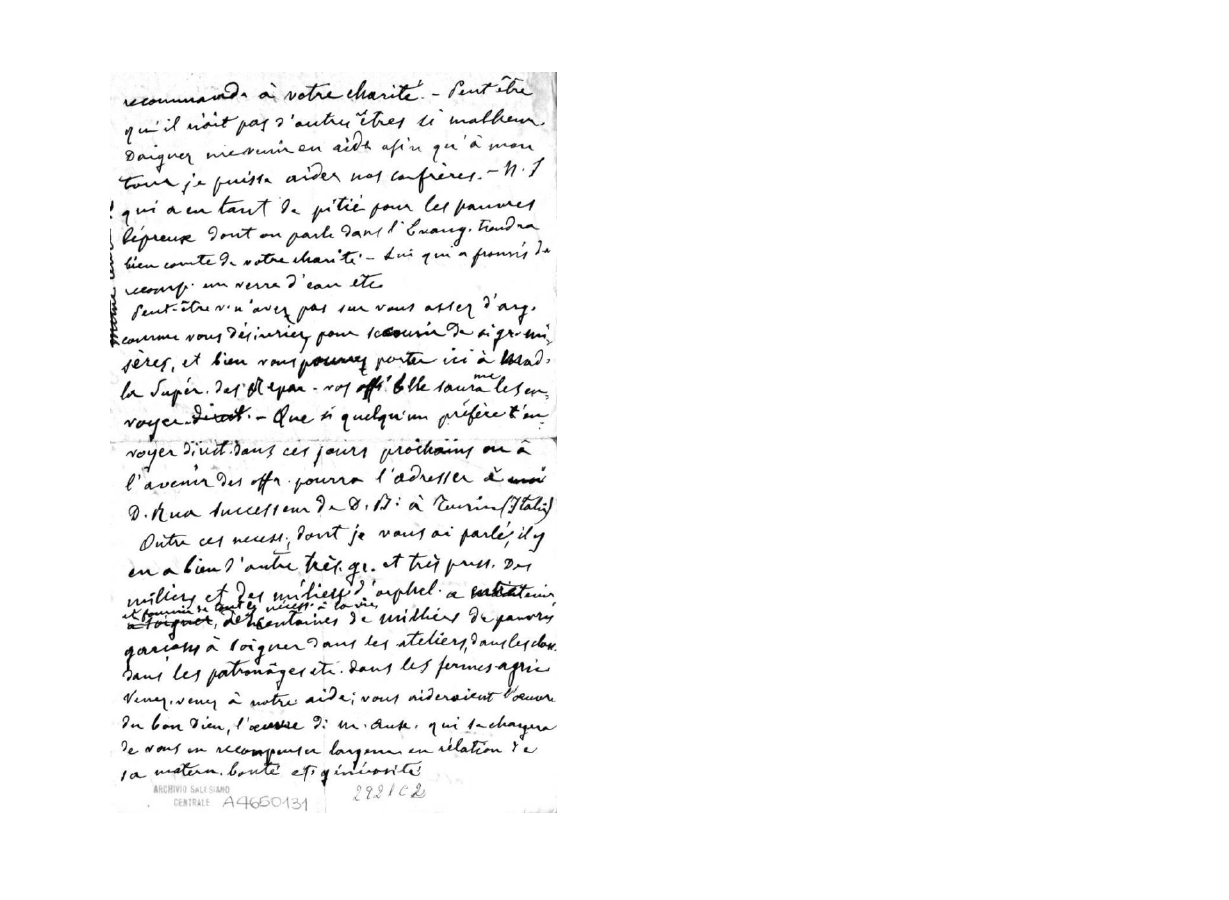 recommande à votre charité. – Peut être
qu'il n'ait pas d'autres êtres si malheur.
Daignez me venir en aide afin qu'à mon
tour je puisse aider nos confrères. – N. S
qui a eu tant de pitié pour les pauvres
lépreux dont on parle dans l'Evang. tiendra
bien comte de votre charité – Lui qui a promis de
recomp. un verre d'eau etc
Peut-être v. n'avez pas sur vous assez d'arg.
comme vous désireriez pour secourir de si gr. mi
sères, et bien vous pourrez porter ici à Mad.
la Supér. des Répar. vos off. Elle saura me les en
voyer direct. – Que si quelqu'un préfère t'en
voyer direct. dans ces jours prochains ou à
l'avenir des offr. pourra l'adresser à moi
D. Rua successeur de D. B: à Turin (Italie)
Outre ces necess., dont je vous ai parlé, il y
en a bien d'autre très gr. et très press. Des
miliers et des miliers d'orphel. a entretenir
et fournir de toutes nécess. à la vie
à soigner, des centaines de milliers de pauvres
garçons à soigner dans les ateliers, dans les clas.
dans les patronâges etc. dans les fermes agric
Venez, venez à notre aide; vous aideraient l'œuvre
du bon Dieu, l'œuvre di M. Aux. qui se chargera
de vous en recompenser largem. en rélation de
sa matern. bonté et génèrosité
ARCHIVIO SALESIANO
CENTRALE A4650131
2921C2